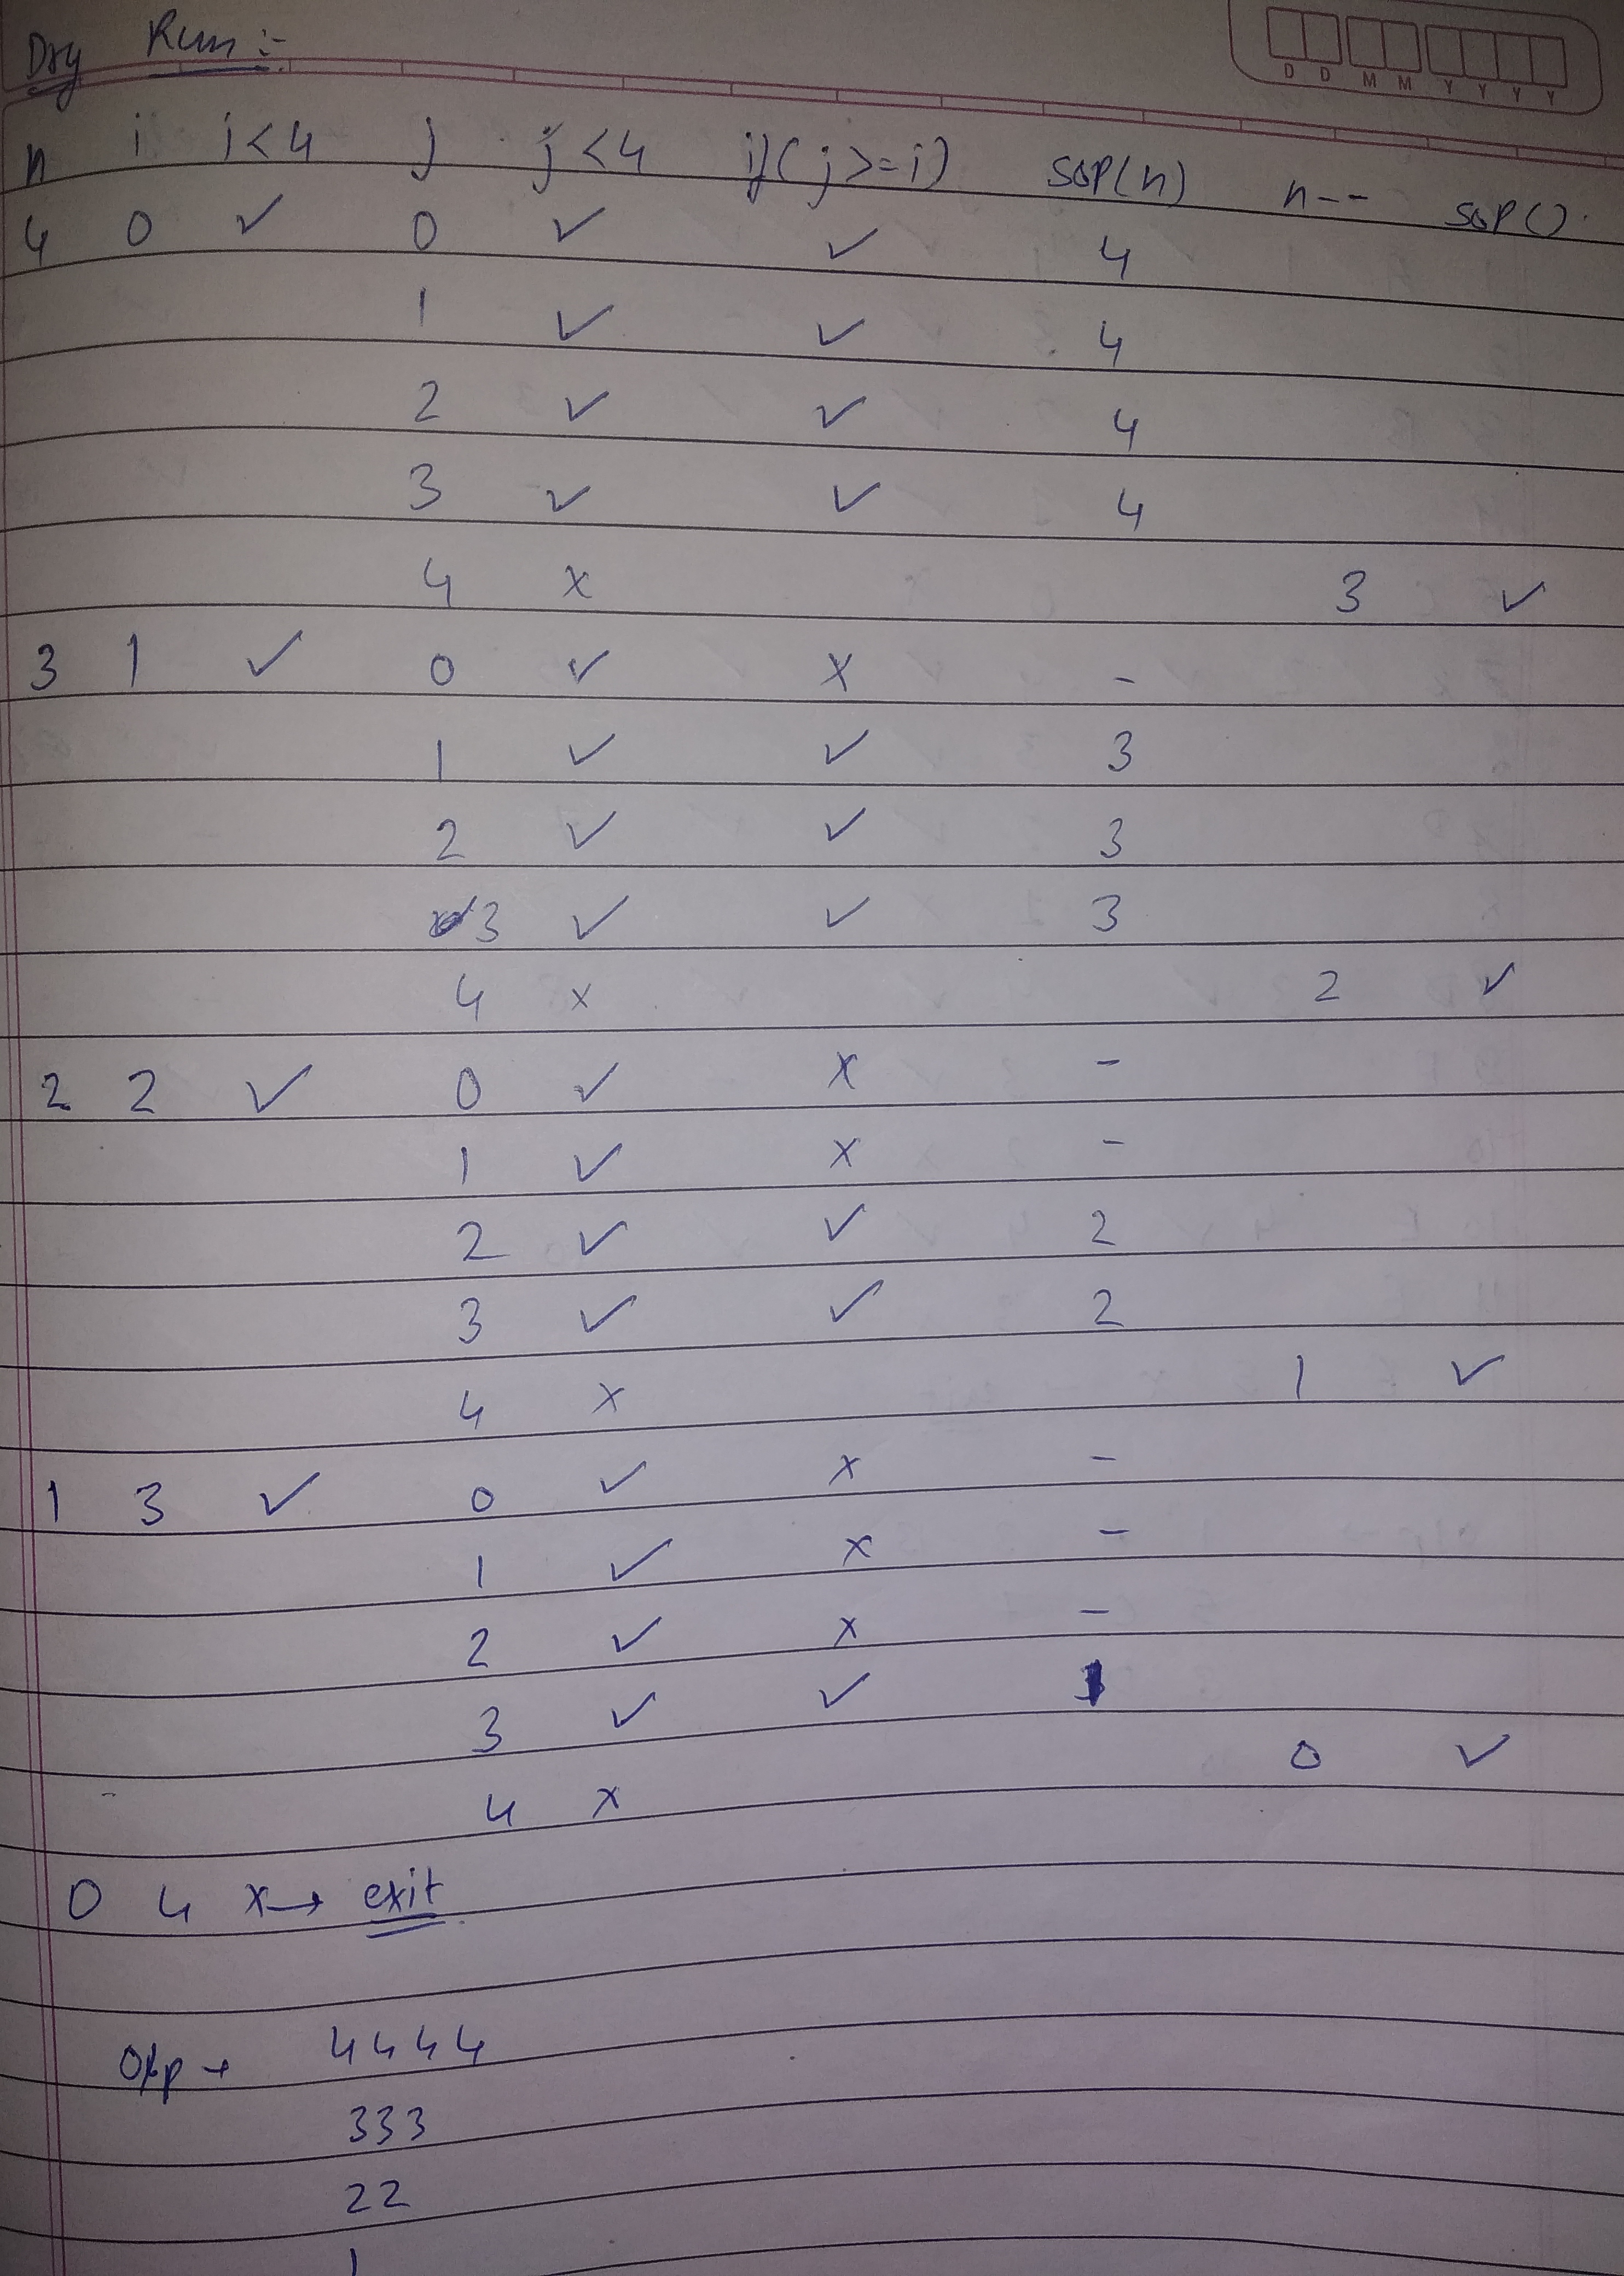 D D M M Y Y Y Y
Dry Run :-
n i i<4 j j<4 if(j>=i) SOP(n) n-- SOP()
4 0 ✓ 0 ✓ ✓ 4
1 ✓ ✓ 4
2 ✓ ✓ 4
3 ✓ ✓ 4
4 x 3 ✓
3 1 ✓ 0 ✓ x -
1 ✓ ✓ 3
2 ✓ ✓ 3
3 ✓ ✓ 3
4 x 2 ✓
2 2 ✓ 0 ✓ x -
1 ✓ x -
2 ✓ ✓ 2
3 ✓ ✓ 2
4 x 1 ✓
1 3 ✓ 0 ✓ x -
1 ✓ x -
2 ✓ x -
3 ✓ ✓ 1
4 x 0 ✓
0 4 x→ exit
O/p → 4444
333
22
1